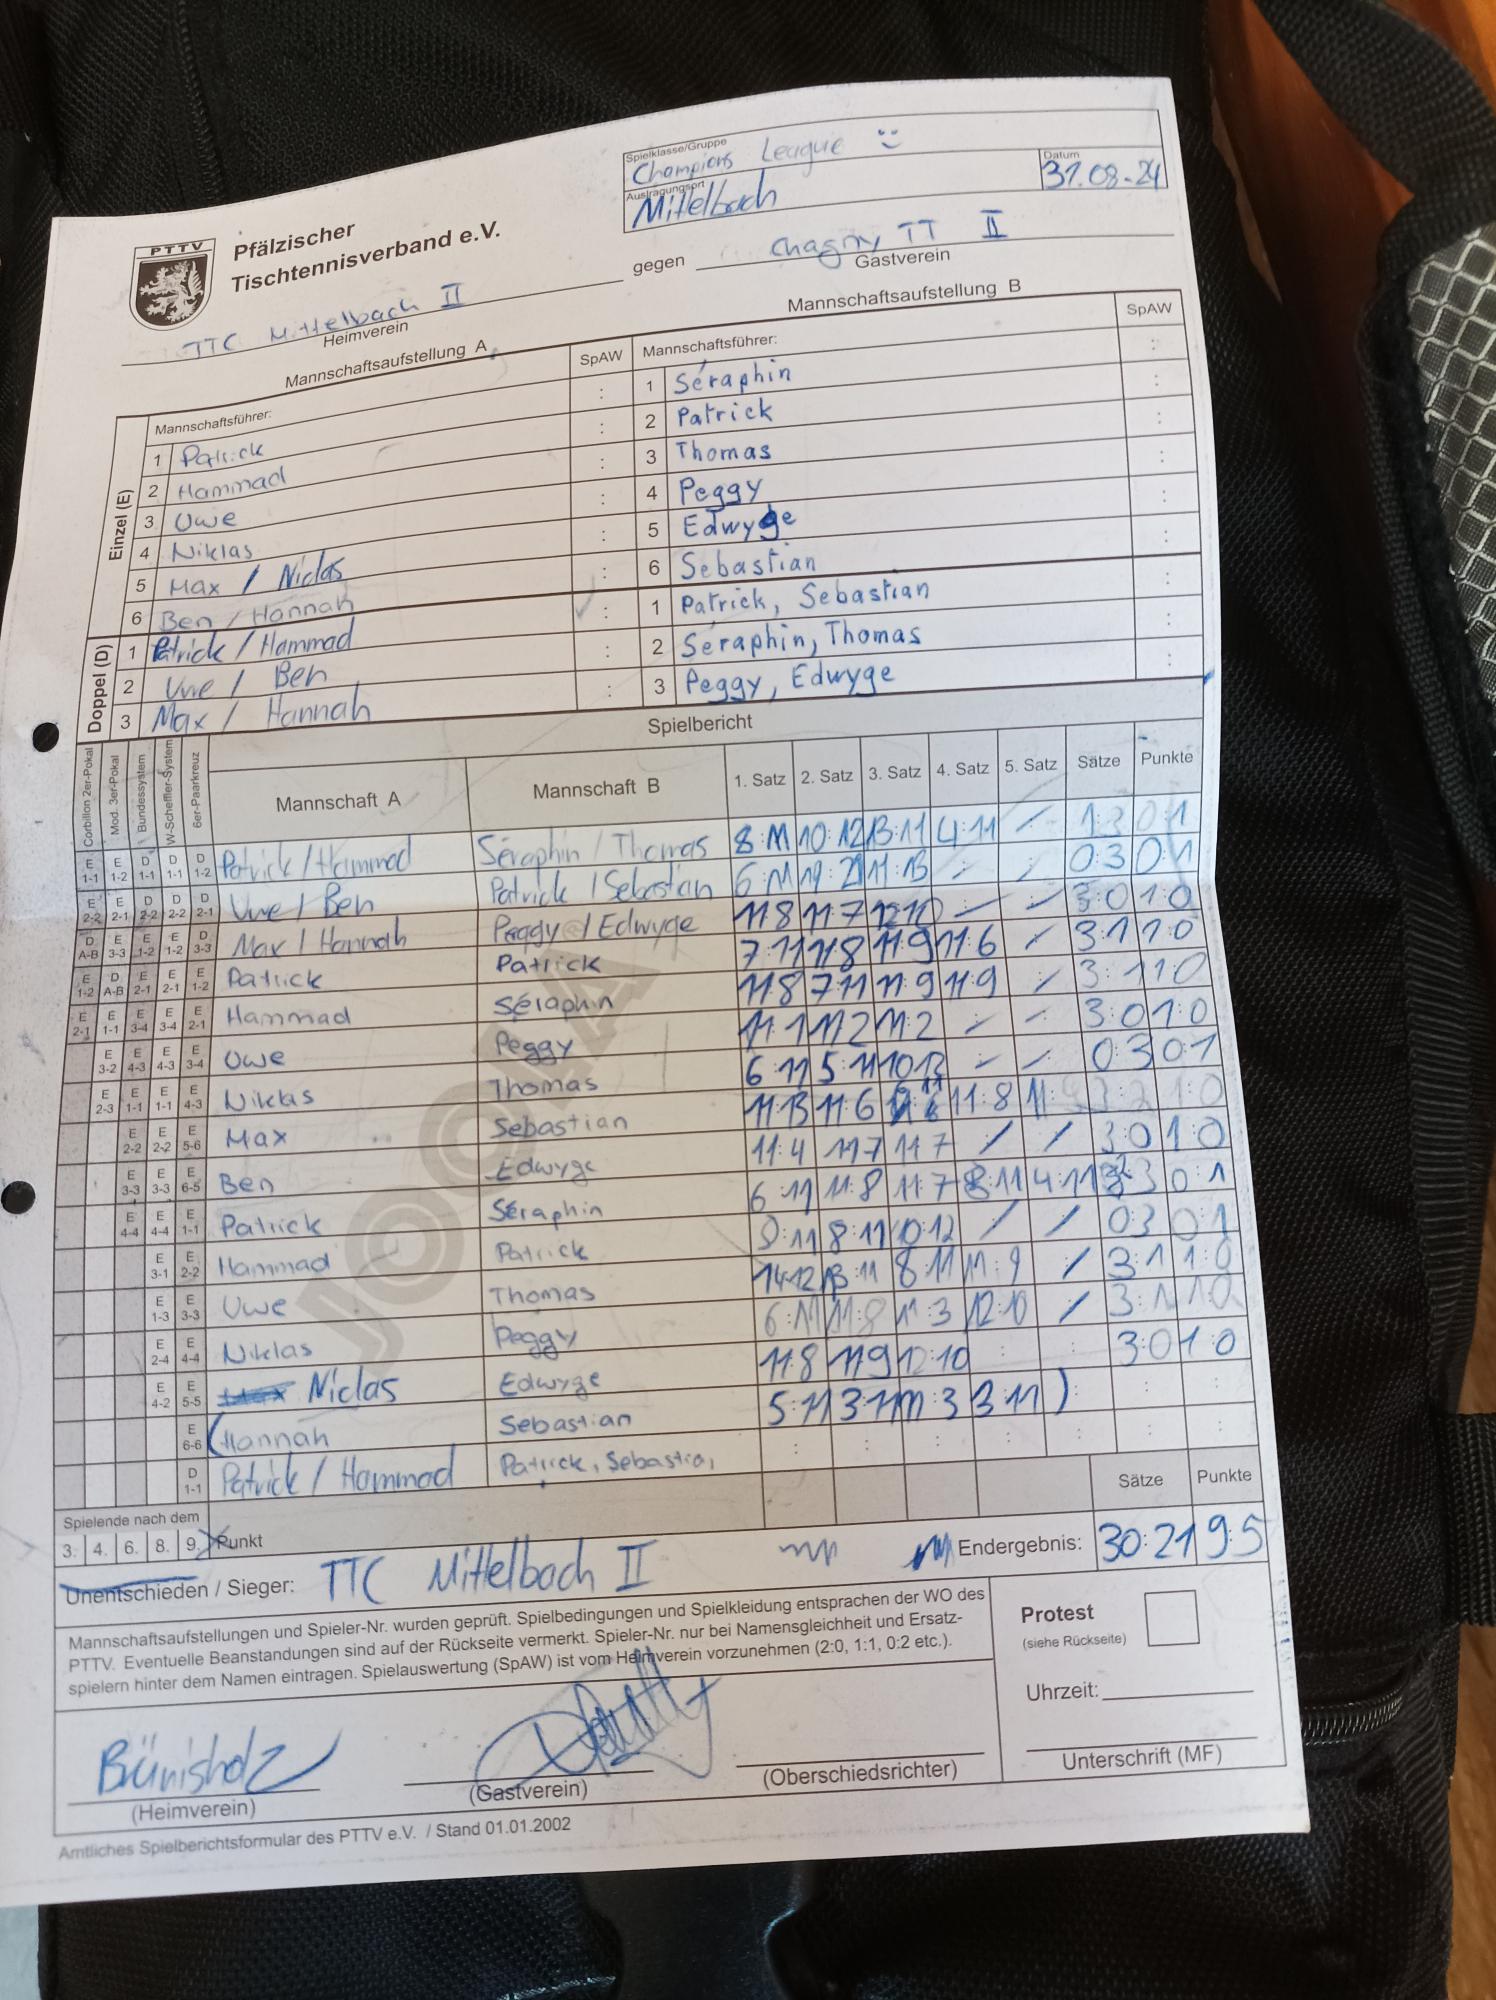 Spielklasse/Gruppe
Champions League
Datum
31.08.24
Austragungsort
Mittelbach
PTTV
Pfälzischer
Tischtennisverband e.V.
TTC Mittelbach II gegen Chagny TT II
Heimverein Gastverein
Mannschaftsaufstellung A SpAW Mannschaftsaufstellung B SpAW
Mannschaftsführer: : Mannschaftsführer: :
Einzel (E)
1 Patrick : 1 Séraphin :
2 Hammad : 2 Patrick :
3 Uwe : 3 Thomas :
4 Niklas : 4 Peggy :
5 Max / Niclas : 5 Edwyge :
6 Ben / Hannah : 6 Sebastian :
Doppel (D)
1 Patrick / Hammad : 1 Patrick, Sebastian :
2 Uwe / Ben : 2 Séraphin, Thomas :
3 Max / Hannah 3 Peggy, Edwyge :
Spielbericht
Corbillon 2er-Pokal Mod. 3er-Pokal Bundessystem W-Scheffler-System 6er-Paarkreuz Mannschaft A Mannschaft B 1. Satz 2. Satz 3. Satz 4. Satz 5. Satz Sätze Punkte
E 1-1 E 1-2 D 1-1 D 1-1 D 1-2 Patrick / Hammad Séraphin / Thomas 8:11 10:12 13:11 4:11 / 1:3 0:1
E 2-2 E 2-1 D 2-2 D 2-2 D 2-1 Uwe / Ben Patrick / Sebastian 6:11 19:21 11:13 : / 0:3 0:1
D A-B E 3-3 E 1-2 E 1-2 D 3-3 Max / Hannah Peggy / Edwyge 11:8 11:7 12:10 / / 3:0 1:0
E 1-2 D A-B E 2-1 E 2-1 E 1-2 Patrick Patrick 7:11 11:8 11:9 11:6 / 3:1 1:0
E 2-1 E 1-1 E 3-4 E 3-4 E 2-1 Hammad Séraphin 11:8 7:11 11:9 11:9 / 3:1 1:0
E 3-2 E 4-3 E 4-3 E 3-4 Uwe Peggy 11:1 11:2 11:2 / / 3:0 1:0
E 2-3 E 1-1 E 1-1 E 4-3 Niklas Thomas 6:11 5:11 10:12 / / 0:3 0:1
E 2-2 E 2-2 E 5-6 Max Sebastian 11:13 11:6 11:8 11: 3:2 1:0
E 3-3 E 3-3 E 6-5 Ben Edwyge 11:4 11:7 11:7 / / 3:0 1:0
E 4-4 E 4-4 E 1-1 Patrick Séraphin 6:11 11:8 11:7 8:11 4:11 2:3 0:1
E 3-1 E 2-2 Hammad Patrick 9:11 8:11 10:12 / / 0:3 0:1
E 1-3 E 3-3 Uwe Thomas 14:12 13:11 8:11 11:9 / 3:1 1:0
E 2-4 E 4-4 Niklas Peggy 6:11 11:8 11:3 12:10 / 3:1 1:0
E 4-2 E 5-5 Niclas Edwyge 11:8 11:9 12:10 : : 3:0 1:0
E 6-6 (Hannah Sebastian 5:11 3:11 11:3 3:11 ) : : :
D 1-1 Patrick / Hammad Patrick, Sebastia, : : : : : : :
Sätze Punkte
Spielende nach dem
3. 4. 6. 8. 9. Punkt Endergebnis: 30:21 9:5
Unentschieden / Sieger: TTC Mittelbach II
Mannschaftsaufstellungen und Spieler-Nr. wurden geprüft. Spielbedingungen und Spielkleidung entsprachen der WO des
PTTV. Eventuelle Beanstandungen sind auf der Rückseite vermerkt. Spieler-Nr. nur bei Namensgleichheit und Ersatz-
spielern hinter dem Namen eintragen. Spielauswertung (SpAW) ist vom Heimverein vorzunehmen (2:0, 1:1, 0:2 etc.).
Protest
(siehe Rückseite)
Uhrzeit:
Unterschrift (MF)
(Heimverein) (Gastverein) (Oberschiedsrichter)
Amtliches Spielberichtsformular des PTTV e.V. / Stand 01.01.2002
JOOLA